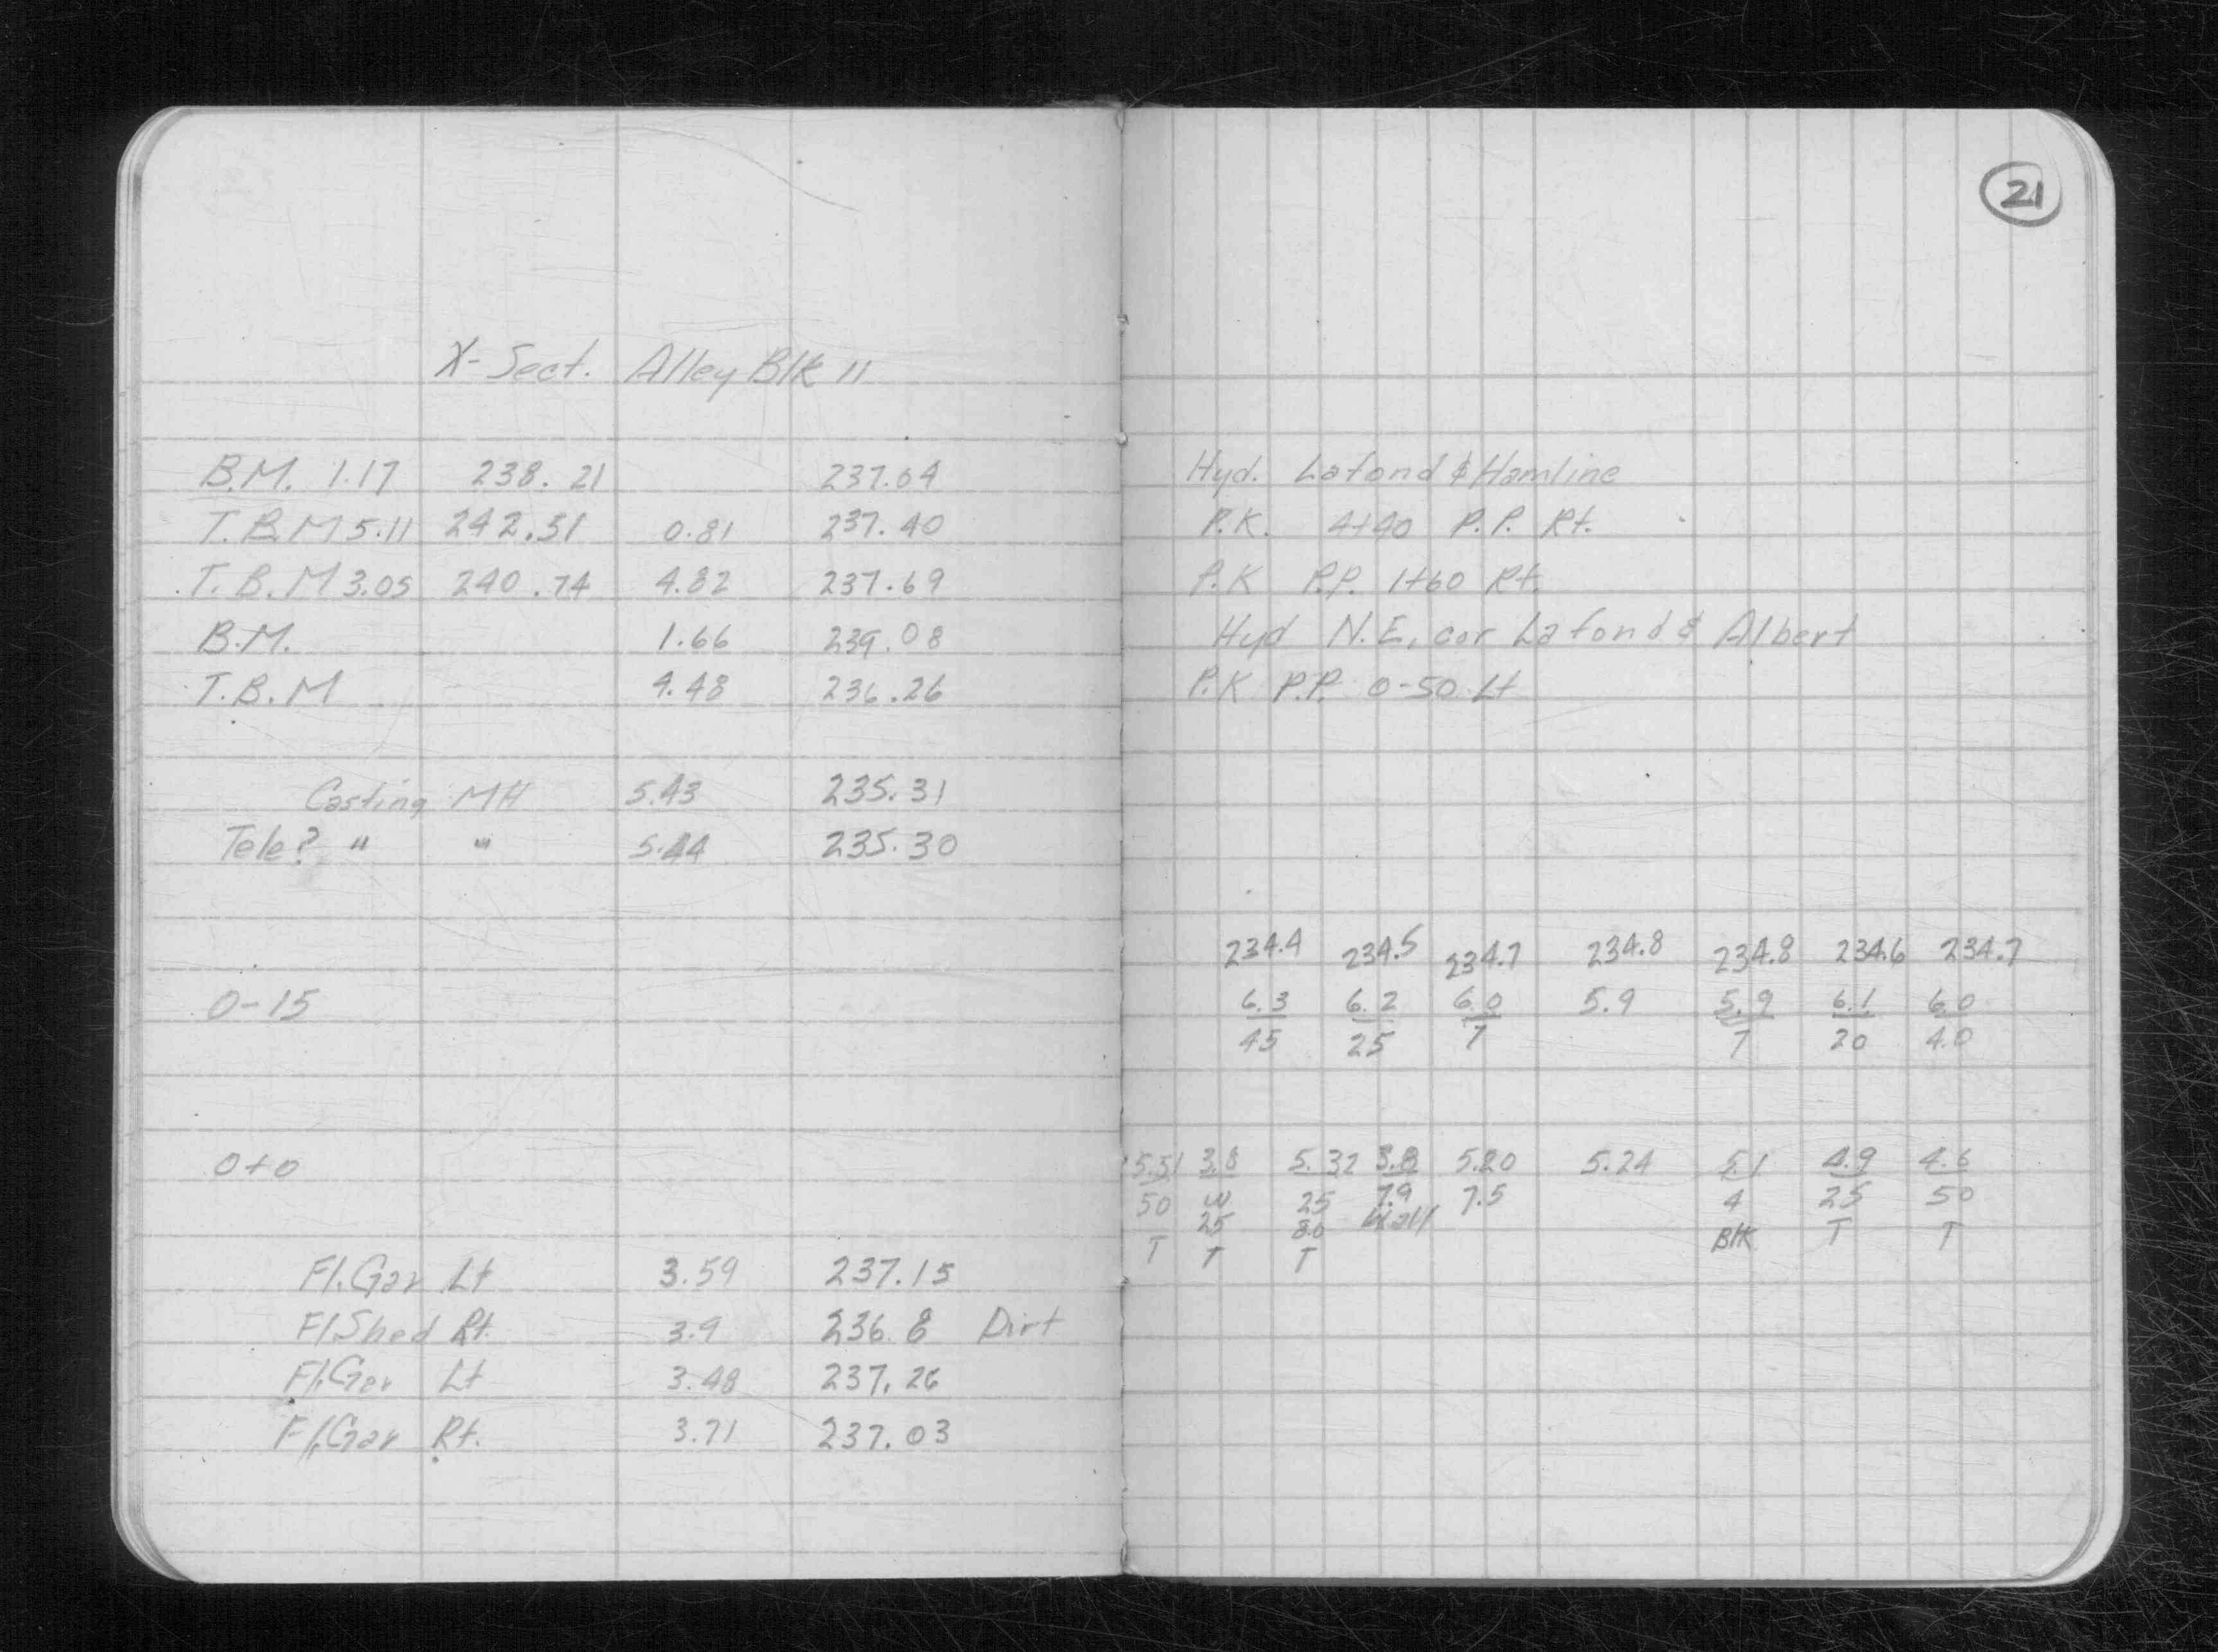 21
X-Sect. Alley Blk 11
B.M. 1.17 238.21 237.04 Hyd. Lafond & Hamline
T.B.M 5.11 242.51 0.81 237.40 P.K. 4+40 P.P. Rt.
T.B.M 3.05 240.74 4.82 237.69 P.K P.P. 1+60 Rt.
B.M. 1.66 239.08 Hyd N.E. cor Lafond & Albert
T.B.M 4.48 236.26 P.K P.P. 0-50 Lt
Casting MH 5.43 235.31
Tele? " " 5.44 235.30
234.4 234.5 234.7 234.8 234.8 234.6 234.7
0-15 6.3 6.2 6.0 5.9 5.9 6.1 6.0
45 25 7 7 20 40
0+0 5.51 3.8 5.32 3.8 5.20 5.24 5.1 4.9 4.6
50 W 25 7.9 7.5 4 25 50
25 80 Wall Blk T T
T T T
Fl.Gar Lt 3.59 237.15
Fl Shed Rt. 3.9 236.8 Dirt
Fl.Gar Lt 3.48 237.26
Fl.Gar Rt. 3.71 237.03